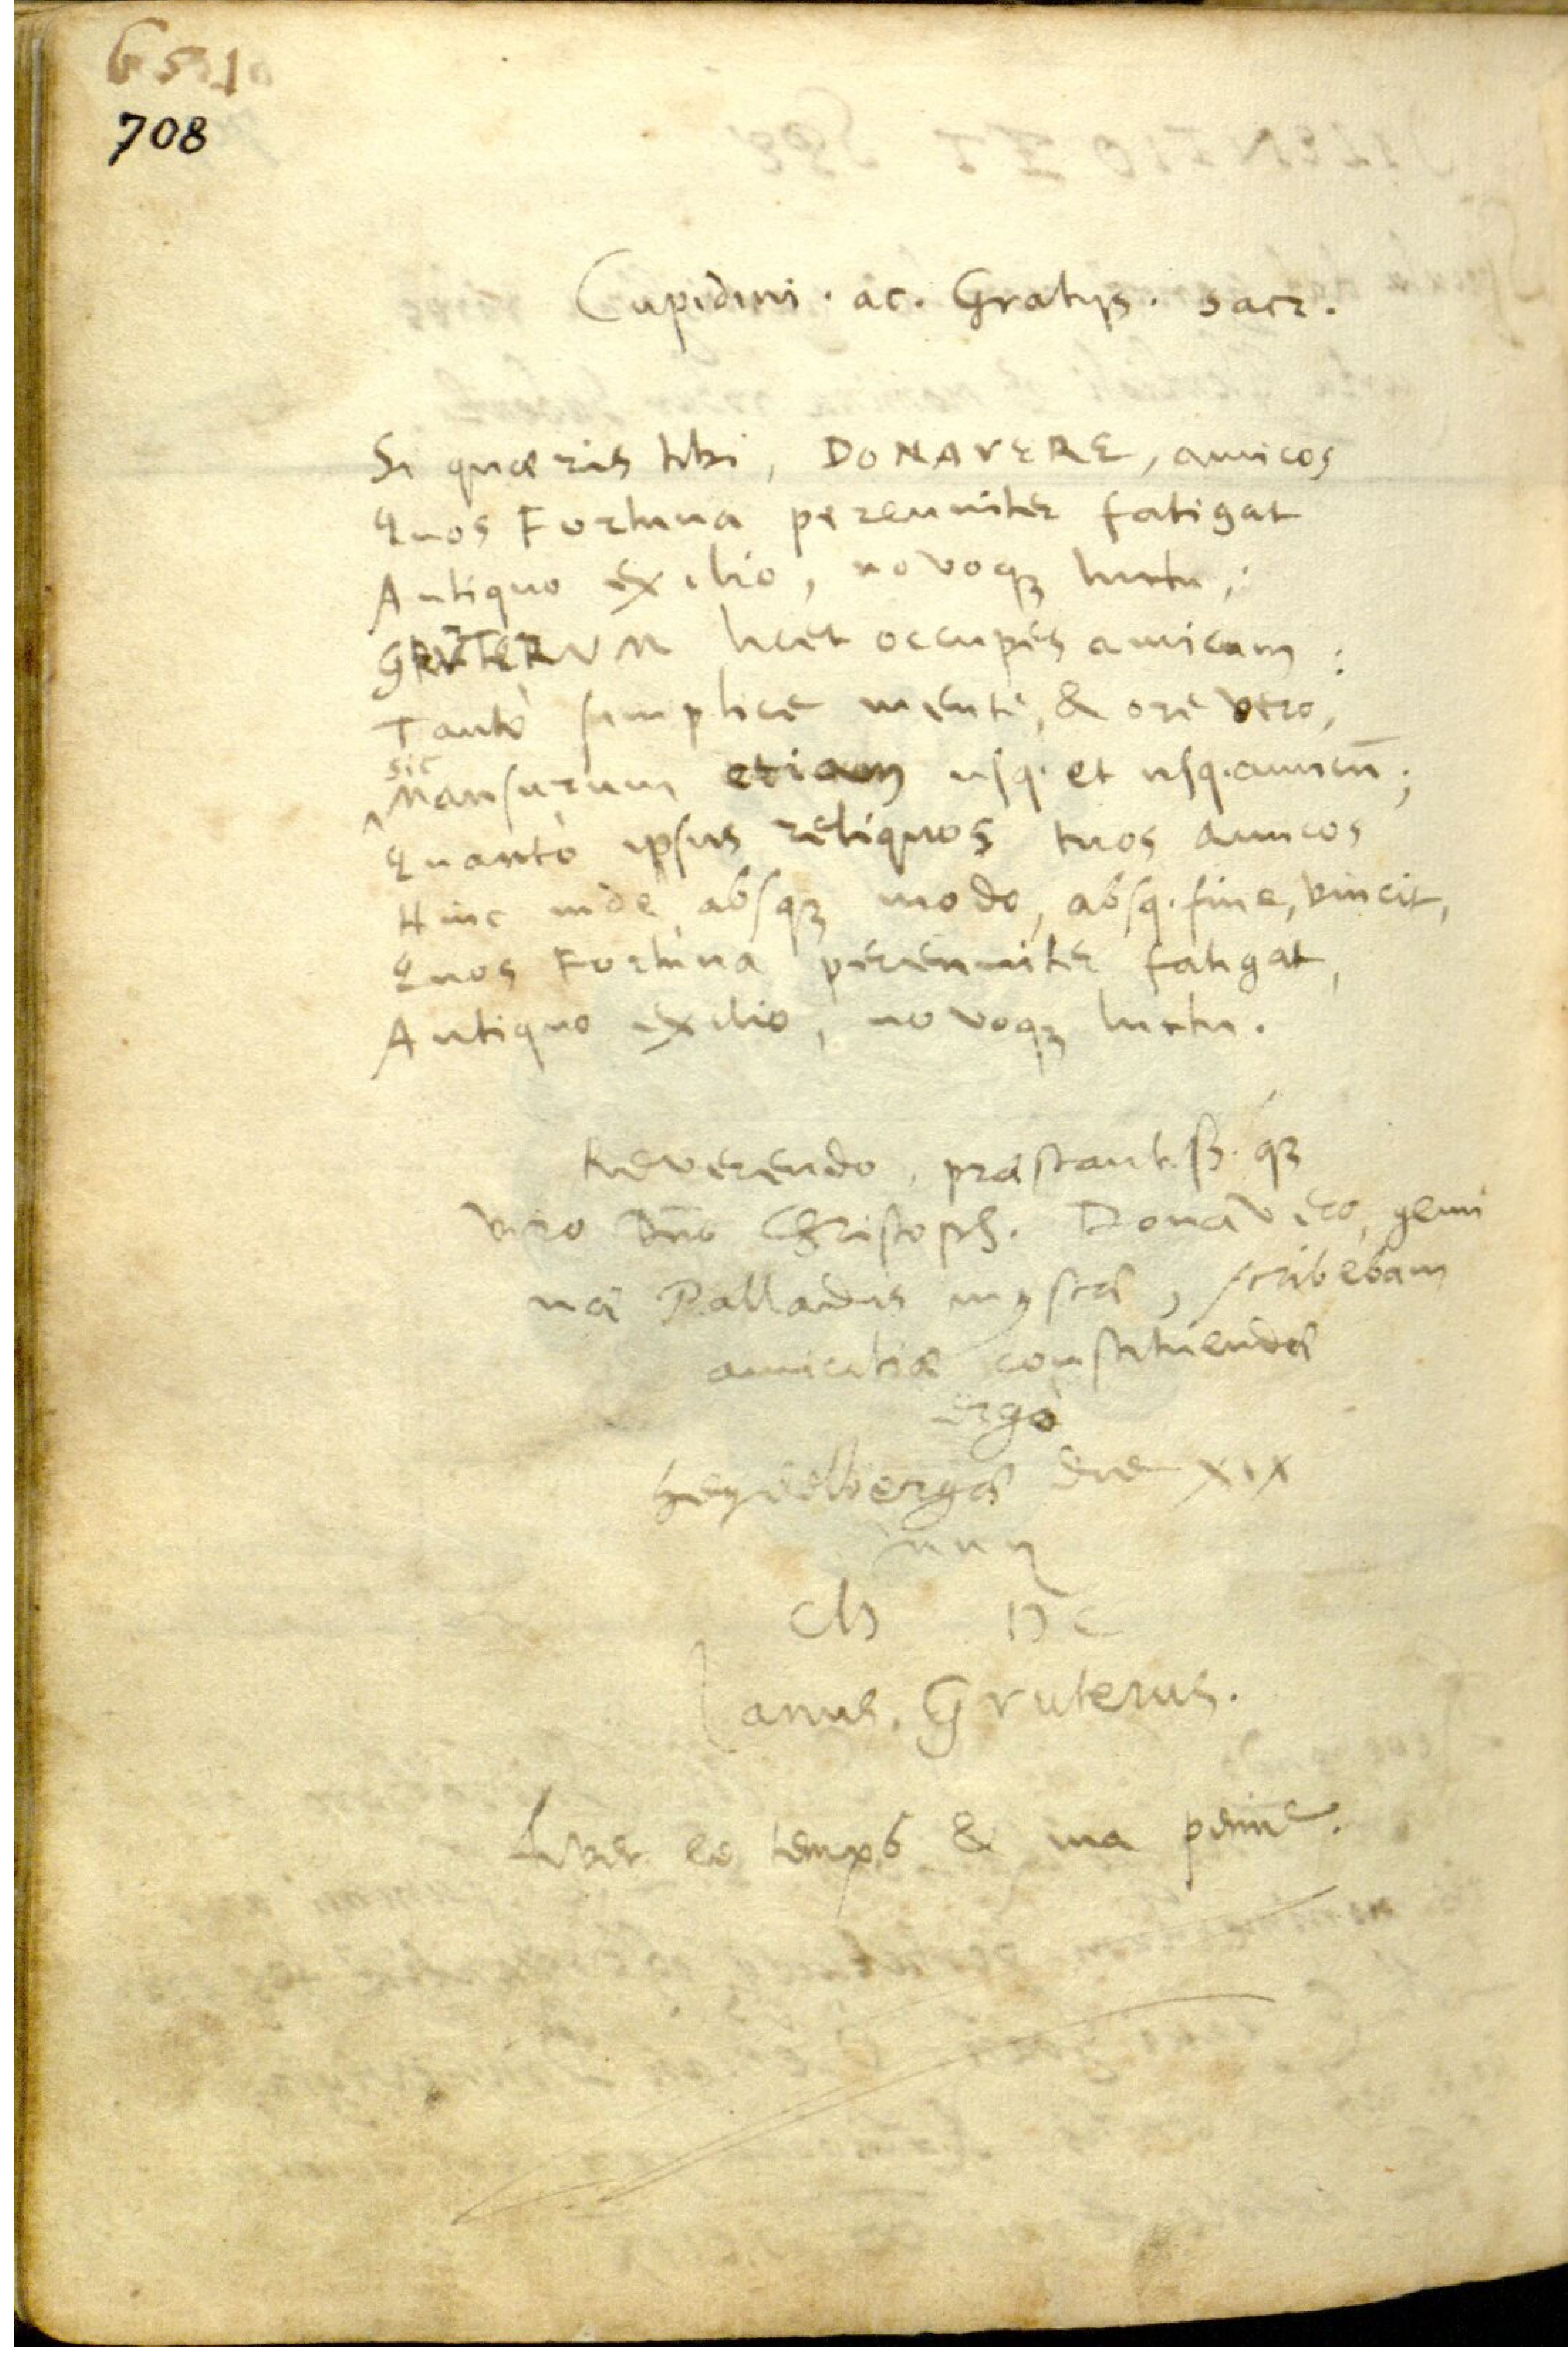 708
Cupidini · ac · Gratijs · sacr.
Si quæris tibi, DONAVERE, amicos
Quos Fortuna perenniter fatigat
Antiquo exilio, novoq; luctu;
GRUTERUM licet occupes amicum:
Tantò simplice mente, & ore vero,
sic
Mansurum etiam usq. et usq. amicū;
Quantò ipsus reliquos tuos amicos
Hinc inde absq; modo, absq. fine, vincit,
Quos Fortuna perenniter fatigat,
Antiquo exilio, novoq; luctu.
Reverendo, præstantiss. q;
viro Dño Christoph. Donavero, gemi
næ Palladis mystæ, scribebam
amicitiæ constituendæ
ergò
Heydelbergæ die XIX
Junij
CIƆ IƆC
Janus Gruterus.
le temps & ma peine.